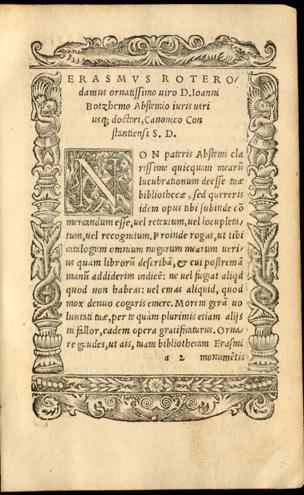 ERASMVS ROTERO/
damus ornatissimo uiro D. Ioanni
Botzhemo Abstemio iuris utri
usq; doctori, Canonico Con
stantiensi S. D.
NON pateris Abstemi cla
rissime quicquam mearū
lucubrationum deesse tuæ
bibliothecæ, sed quereris
idem opus tibi subinde cō
mercandum esse, uel retextum, uel locupleta/
tum, uel recognitum. Proinde rogas, ut tibi
catalogum omnium nugarum mearum ueri/
us quàm librorū describā, & cui postremā
manū addiderim indicē: ne uel fugiat aliqd
quod non habeas: uel emas aliquid, quod
mox denuo cogaris emere. Morem gerā uo
luntati tuæ, per te quàm plurimis etiam alijs
ni fallor, eadem opera gratificaturus. Orna/
re gaudes, ut ais, tuam bibliothecam Erasmi
a 2 monumētis